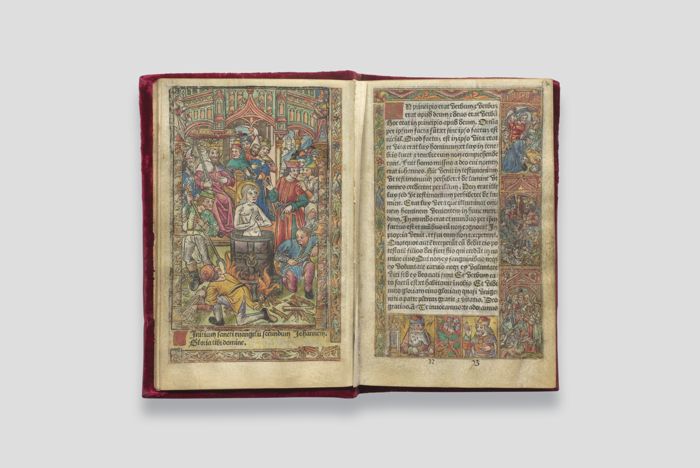 Initium sancti euangelii secundum Johannem.
Gloria tibi domine.
IN principio erat verbum & verbum
erat apud deum & deus erat verbū
hoc erat in principio apud deum. Omnia
per ipsum facta sūt & sine ipso factum est
nichil. Quod factum est in ipso vita erat
et vita erat lux hominum & lux in tene-
bris lucet & tenebre eam non comprehende
runt. Fuit homo missus a deo cui nomen
erat iohannes. Hic venit in testimonium
vt testimonium perhiberet de lumine vt
omnes crederent per illum. Non erat ille
lux sed vt testimonium perhiberet de lu
mine. Erat lux vera que illuminat om
nem hominem venientem in hunc mun
dum. In mundo erat et mundus per ipm
factus est et mūdus eum non cognouit In
propria venit et sui eum non receperunt
Quotquot autē receperunt eū dedit eis po
testatē filios dei fieri his qui credūt in no
mine eius Qui non ex sanguinibus neq3
ex voluntate carnis neq3 ex voluntate
viri sed ex deo nati sunt Et verbum ca
ro factū est et habitauit in nobis Et vidi
mus gloriam eius gloriam quasi vnige
niti a patre plenum gratie & veritatis. Deo
gratias.